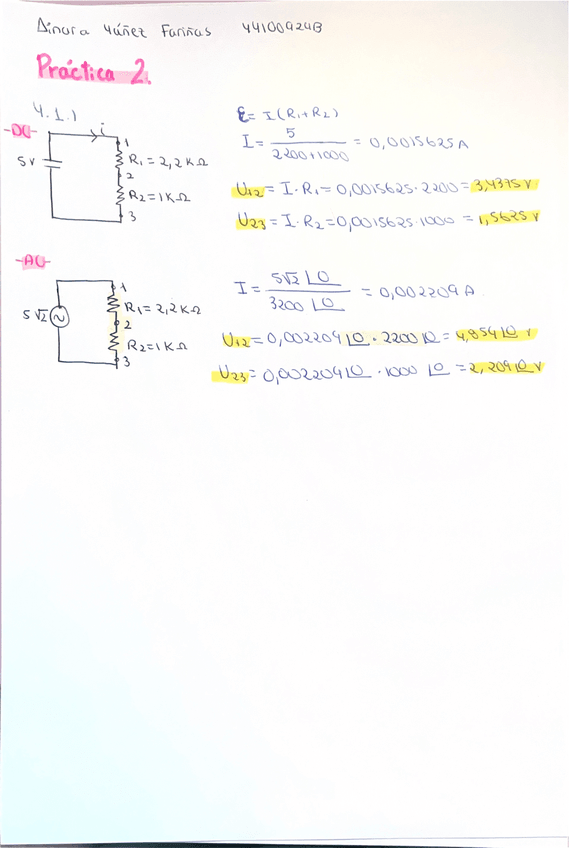 Dinara Yáñez Fariñas 44100924B
Práctica 2.
4.1.1
-DC-
i
5V
1
R1 = 2,2 KΩ
2
R2 = 1KΩ
3
ε = I(R1+R2)
I = 5 / 2200+1000 = 0,0015625A
U12 = I·R1 = 0,0015625·2200 = 3,4375 V
U23 = I·R2 = 0,0015625·1000 = 1,5625 V
-AC-
5√2
1
R1 = 2,2KΩ
2
R2 = 1KΩ
3
I = 5√2 |0 / 3200 |0 = 0,002209 A
U12 = 0,002209 |0 · 2200 |0 = 4,854 |0 V
U23 = 0,002209 |0 · 1000 |0 = 2,209 |0 V